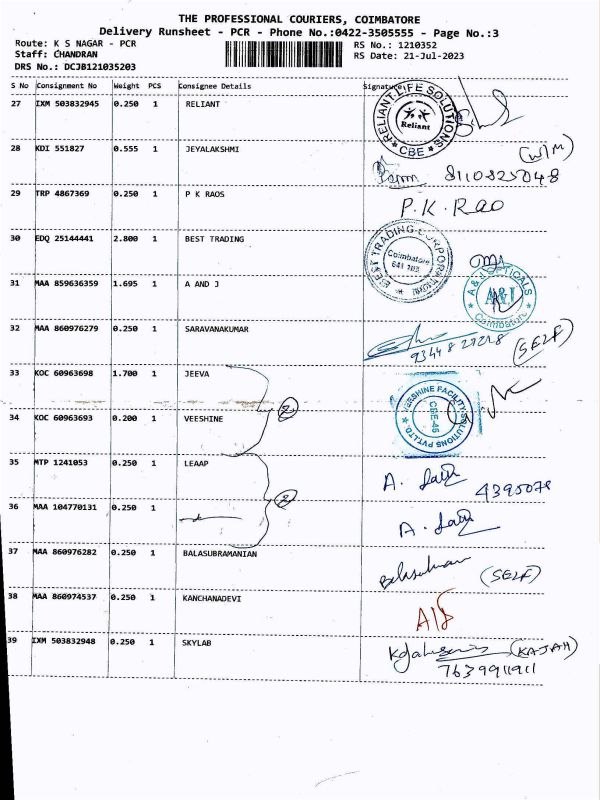 THE PROFESSIONAL COURIERS, COIMBATORE
Delivery Runsheet - PCR - Phone No.:0422-3505555 - Page No.:3
Route: K S NAGAR - PCR
RS No.: 1210352
Staff: CHANDRAN
RS Date: 21-Jul-2023
DRS No.: DCJB121035203
S No Consignment No Weight PCS Consignee Details Signature
27 IXM 503832945 0.250 1 RELIANT
RELIANT LIFE SOLUTIONS
Reliant
CBE
28 KDI 551827 0.555 1 JEYALAKSHMI
(W/M)
8110825048
29 TRP 4867369 0.250 1 P K RAOS
P.K. Rao
30 EDQ 25144441 2.800 1 BEST TRADING
BEST TRADING CORPORATION
Coimbatore
31 MAA 859636359 1.695 1 A AND J
A & J OPTICALS
A&J
Coimbatore
32 MAA 860976279 0.250 1 SARAVANAKUMAR
(SELF)
33 KOC 60963698 1.700 1 JEEVA
2
34 KOC 60963693 0.200 1 VEESHINE
VEESHINE FACILITY SOLUTIONS PVT.LTD.
CBE-45
35 MTP 1241053 0.250 1 LEAAP
2
4395078
36 MAA 104770131 0.250 1
37 MAA 860976282 0.250 1 BALASUBRAMANIAN
(SELF)
38 MAA 860974537 0.250 1 KANCHANADEVI
39 IXM 503832948 0.250 1 SKYLAB
(KAJAH)
7639911911